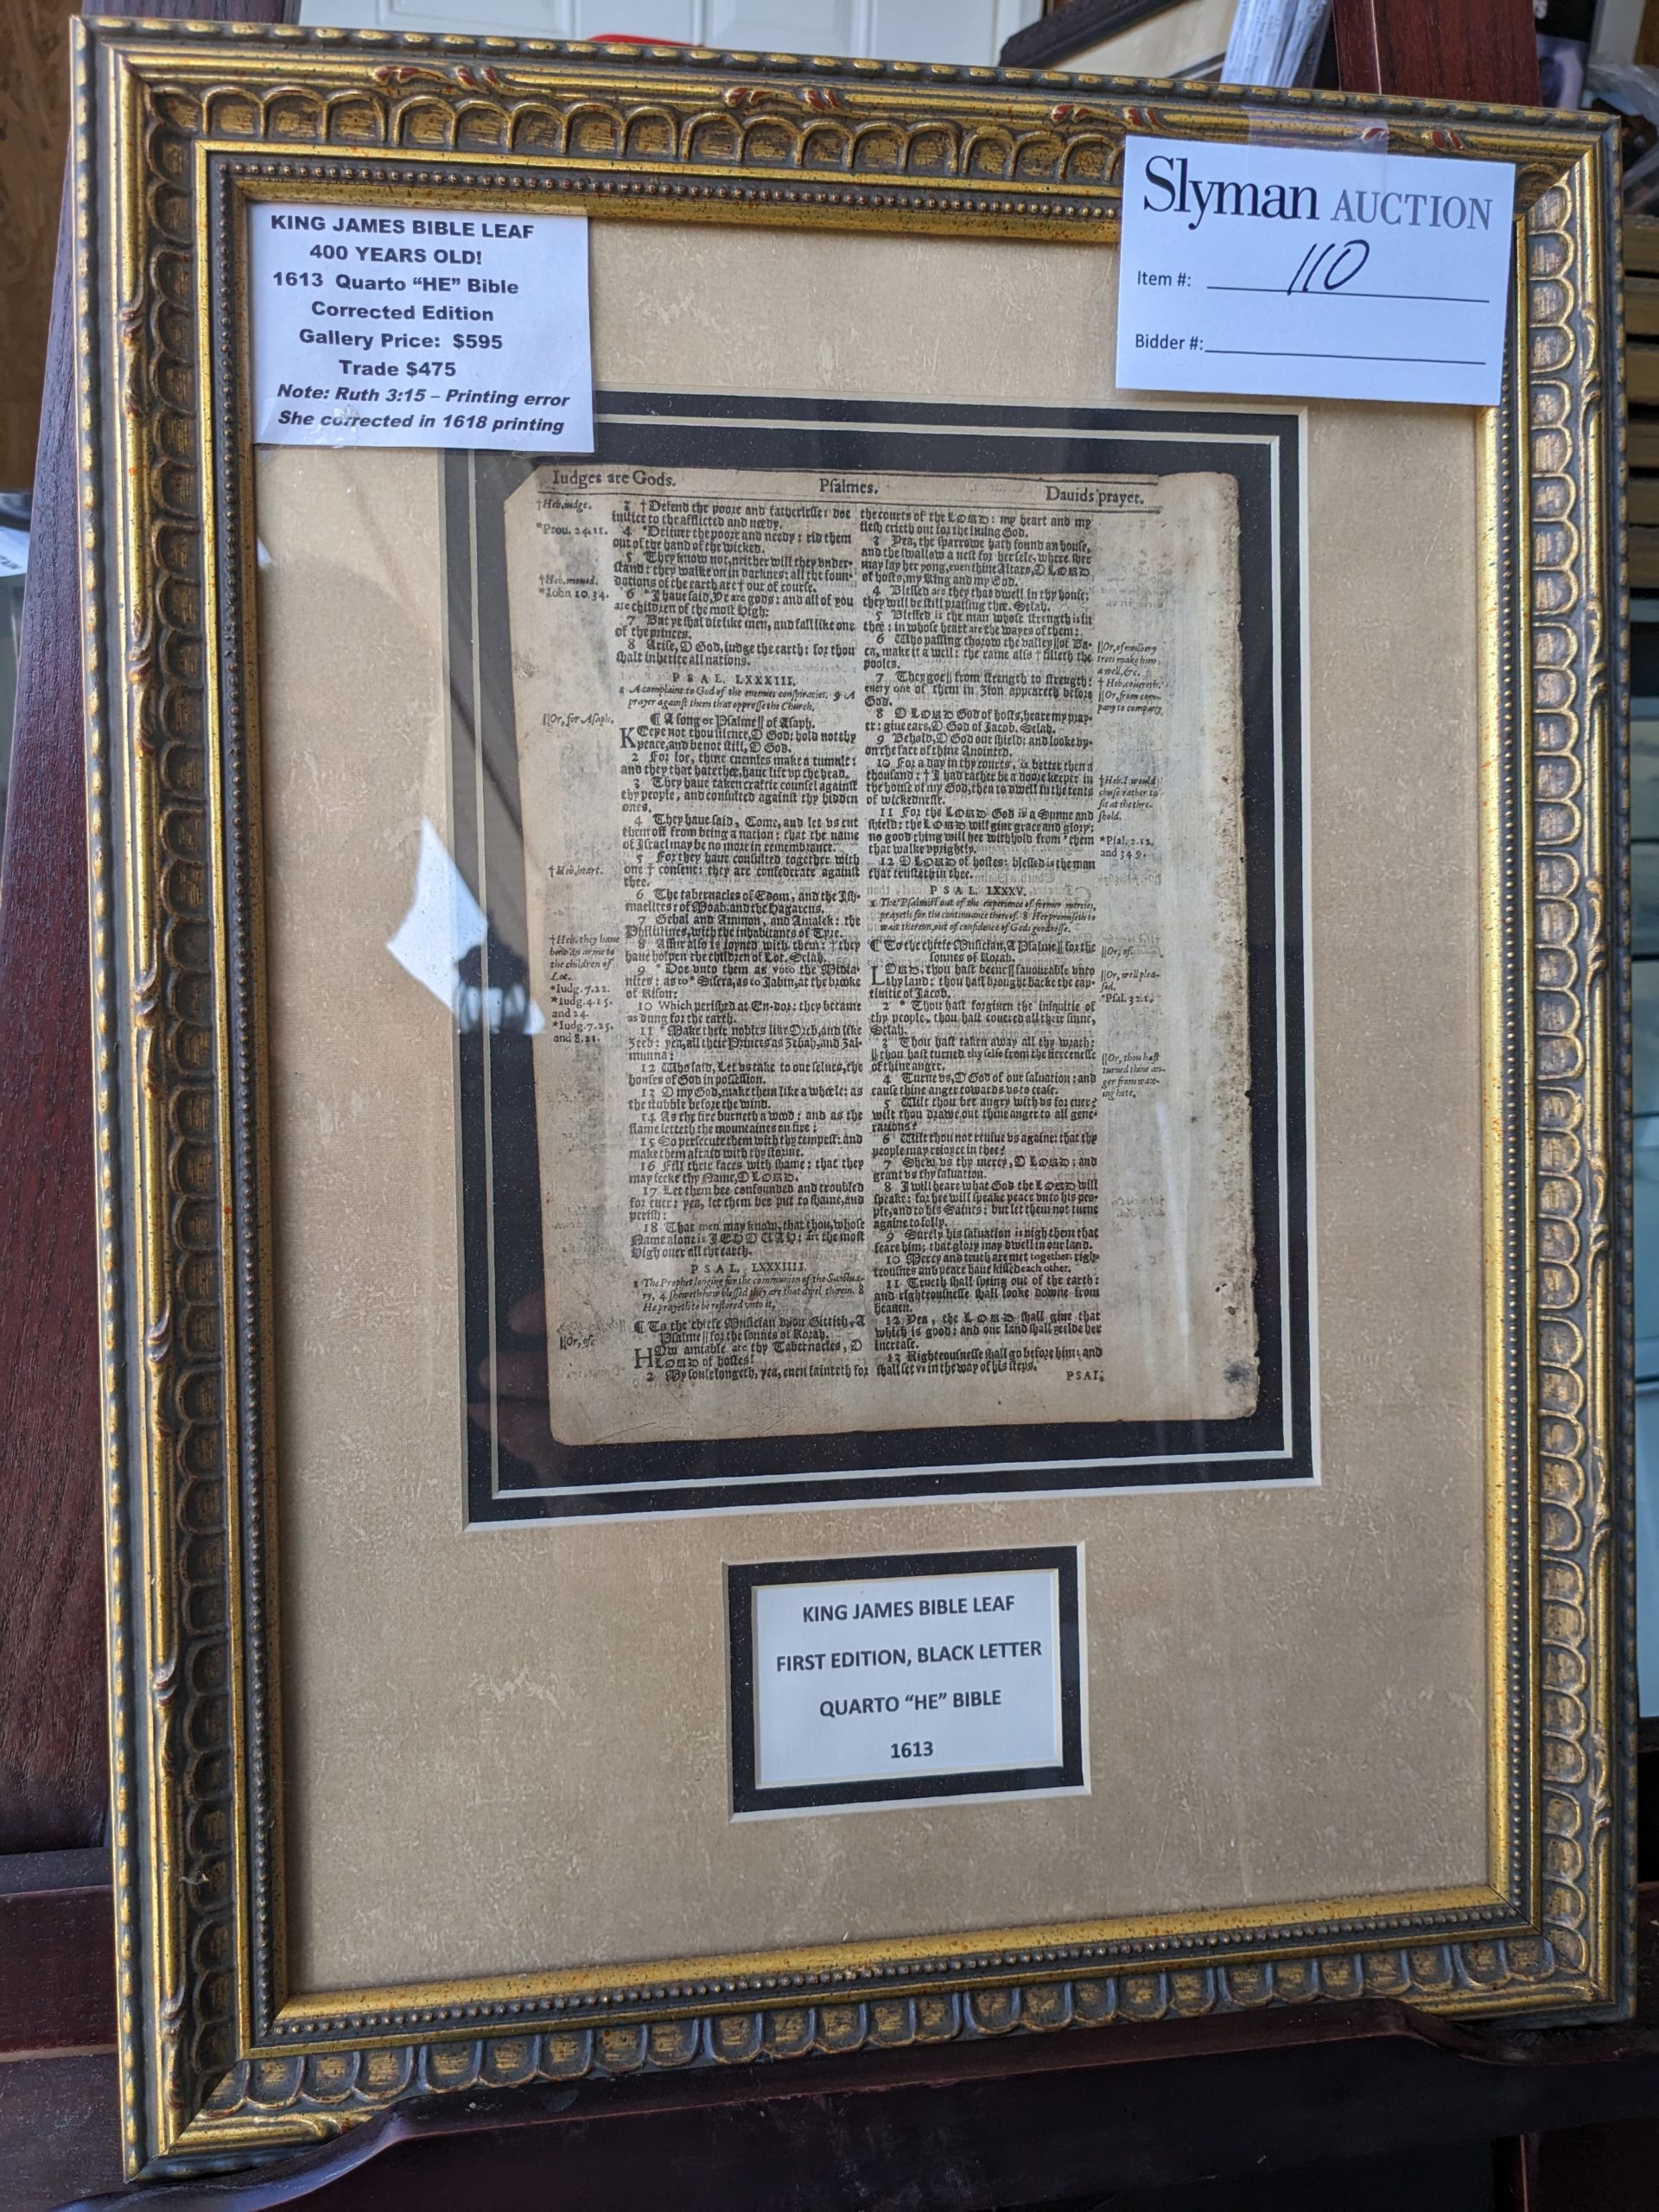 KING JAMES BIBLE LEAF
400 YEARS OLD!
1613 Quarto “HE” Bible
Corrected Edition
Gallery Price: $595
Trade $475
Note: Ruth 3:15 – Printing error
She corrected in 1618 printing
Slyman AUCTION
Item #: 110
Bidder #:
Iudges are Gods.
Psalmes.
Dauids prayer.
†Heb.iudge.
*Prou. 24.11.
†Heb.moued.
*Iohn 10.34.
||Or, for Asaph.
†Heb.heart.
†Heb. they haue
been an arme to
the children of
Lot.
*Iudg.7.22.
*Iudg.4.15.
and 24.
*Iudg.7.25.
and 8.21.
||Or, of.
3 †Defend the poore and fatherlesse: doe
iustice to the afflicted and needy.
4 *Deliuer the poore and needy: rid them
out of the hand of the wicked.
5 They know not, neither will they vnder-
stand: they walke on in darknes: all the foun-
dations of the earth are † out of course.
6 *I haue said, Ye are gods: and all of you
are children of the most High:
7 But ye shal die like men, and fall like one
of the princes.
8 Arise, O God, iudge the earth: for thou
shalt inherite all nations.
PSAL. LXXXIII.
1 A complaint to God of the enemies conspiracies. 9 A
prayer against them that oppresse the Church.
¶ A song or Psalme || of Asaph.
KEepe not thou silence, O God: hold not thy
peace, and be not still, O God.
2 For loe, thine enemies make a tumult:
and they that hate thee, haue lift vp the head.
3 They haue taken craftie counsel against
thy people, and consulted against thy hidden
ones.
4 They haue said, Come, and let vs cut
them off from being a nation: that the name
of Israel may be no more in remembrance.
5 For they haue consulted together with
one † consent: they are confederate against
thee.
6 The tabernacles of Edom, and the Ish-
maelites: of Moab and the Hagarens.
7 Gebal and Ammon, and Amalek: the
Philistines, with the inhabitants of Tyre.
8 Assur also is ioyned with them: † they
haue holpen the children of Lot. Selah.
9 *Doe vnto them as vnto the Midia-
nites: as to * Sisera, as to Iabin, at the brooke
of Kison:
10 Which perished at En-dor: they became
as dung for the earth.
11 *Make their nobles like Oreb, and like
Zeeb: yea, all their Princes as Zebah, and Zal-
munna:
12 Who said, Let vs take to our selues, the
houses of God in possession.
13 O my God, make them like a wheele: as
the stubble before the wind.
14 As the fire burneth a wood: and as the
flame setteth the mountaines on fire:
15 So persecute them with thy tempest: and
make them afraid with thy storme.
16 Fill their faces with shame: that they
may seeke thy Name, O LORD.
17 Let them bee confounded and troubled
for euer: yea, let them bee put to shame, and
perish:
18 That men may know, that thou, whose
Name alone is IEHOUAH: art the most
High ouer all the earth.
PSAL. LXXXIIII.
1 The Prophet longing for the communion of the Sanctua-
ry, 4 sheweth how blessed they are that dwel therein. 8
He prayeth to be restored vnto it.
¶ To the chiefe Musician vpon Gittith, A
Psalme || for the sonnes of Korah.
HOw amiable are thy Tabernacles, O
LORD of hostes!
2 My soule longeth, yea, euen fainteth for
the courts of the LORD: my heart and my
flesh crieth out for the liuing God.
3 Yea, the sparrowe hath found an house,
and the swallow a nest for her selfe, where shee
may lay her yong, euen thine Altars, O LORD
of hosts, my King and my God.
4 Blessed are they that dwell in thy house:
they will be still praising thee. Selah.
5 Blessed is the man whose strength is in
thee: in whose heart are the wayes of them:
6 Who passing thorow the valley || of Ba-
ca, make it a well: the raine also † filleth the
pooles.
7 They goe || from strength to strength:
euery one of them in Zion appeareth before
God.
8 O LORD God of hosts, heare my pray-
er: giue eare, O God of Jacob. Selah.
9 Behold, O God our shield: and looke vp-
on the face of thine Anointed.
10 For a day in thy courts, is better then a
thousand: † I had rather be a doore keeper in
the house of my God, then to dwell in the tents
of wickednesse.
11 For the LORD God is a Sunne and
shield: the LORD will giue grace and glory:
no good thing will hee withhold from * them
that walke vprightly.
12 O LORD of hostes: blessed is the man
that trusteth in thee.
PSAL. LXXXV.
1 The Psalmist out of the experience of former mercies,
prayeth for the continuance thereof. 8 Hee promiseth to
wait thereon, out of confidence of Gods goodnesse.
¶ To the chiefe Musician, A Psalme || for the
sonnes of Korah.
LORD, thou hast beene || fauourable vnto
thy land: thou hast brought backe the cap-
tiuitie of Jacob.
2 * Thou hast forgiuen the iniquitie of
thy people, thou hast couered all their sinne,
Selah.
3 Thou hast taken away all thy wrath:
|| thou hast turned thy selfe from the fiercenesse
of thine anger.
4 Turne vs, O God of our saluation: and
cause thine anger towards vs to cease.
5 Wilt thou bee angry with vs for euer?
wilt thou drawe out thine anger to all gene-
rations?
6 Wilt thou not reuiue vs againe: that thy
people may reioyce in thee?
7 Shew vs thy mercy, O LORD: and
grant vs thy saluation.
8 I will heare what God the LORD will
speake: for hee will speake peace vnto his peo-
ple, and to his Saints: but let them not turne
againe to folly.
9 Surely his saluation is nigh them that
feare him; that glory may dwell in our land.
10 Mercy and trueth are met together: righ-
teousnes and peace haue kissed each other.
11 Trueth shall spring out of the earth:
and righteousnesse shall looke downe from
heauen.
12 Yea, the LORD shall giue that
which is good: and our land shall yeilde her
increase.
13 Righteousnesse shall go before him: and
shall set vs in the way of his steps.
PSAL.
||Or, of mulbery
trees make him
a well, &c.
† Heb.couereth.
||Or, from com-
pany to company.
†Heb. I would
chuse rather to
sit at the thre-
shold.
*Psal. 2.12.
and 34 9.
||Or, of.
||Or, well plea-
sed.
*Psal. 32.1.
||Or, thou hast
turned thine an-
ger from wax-
ing hote.
KING JAMES BIBLE LEAF
FIRST EDITION, BLACK LETTER
QUARTO “HE” BIBLE
1613